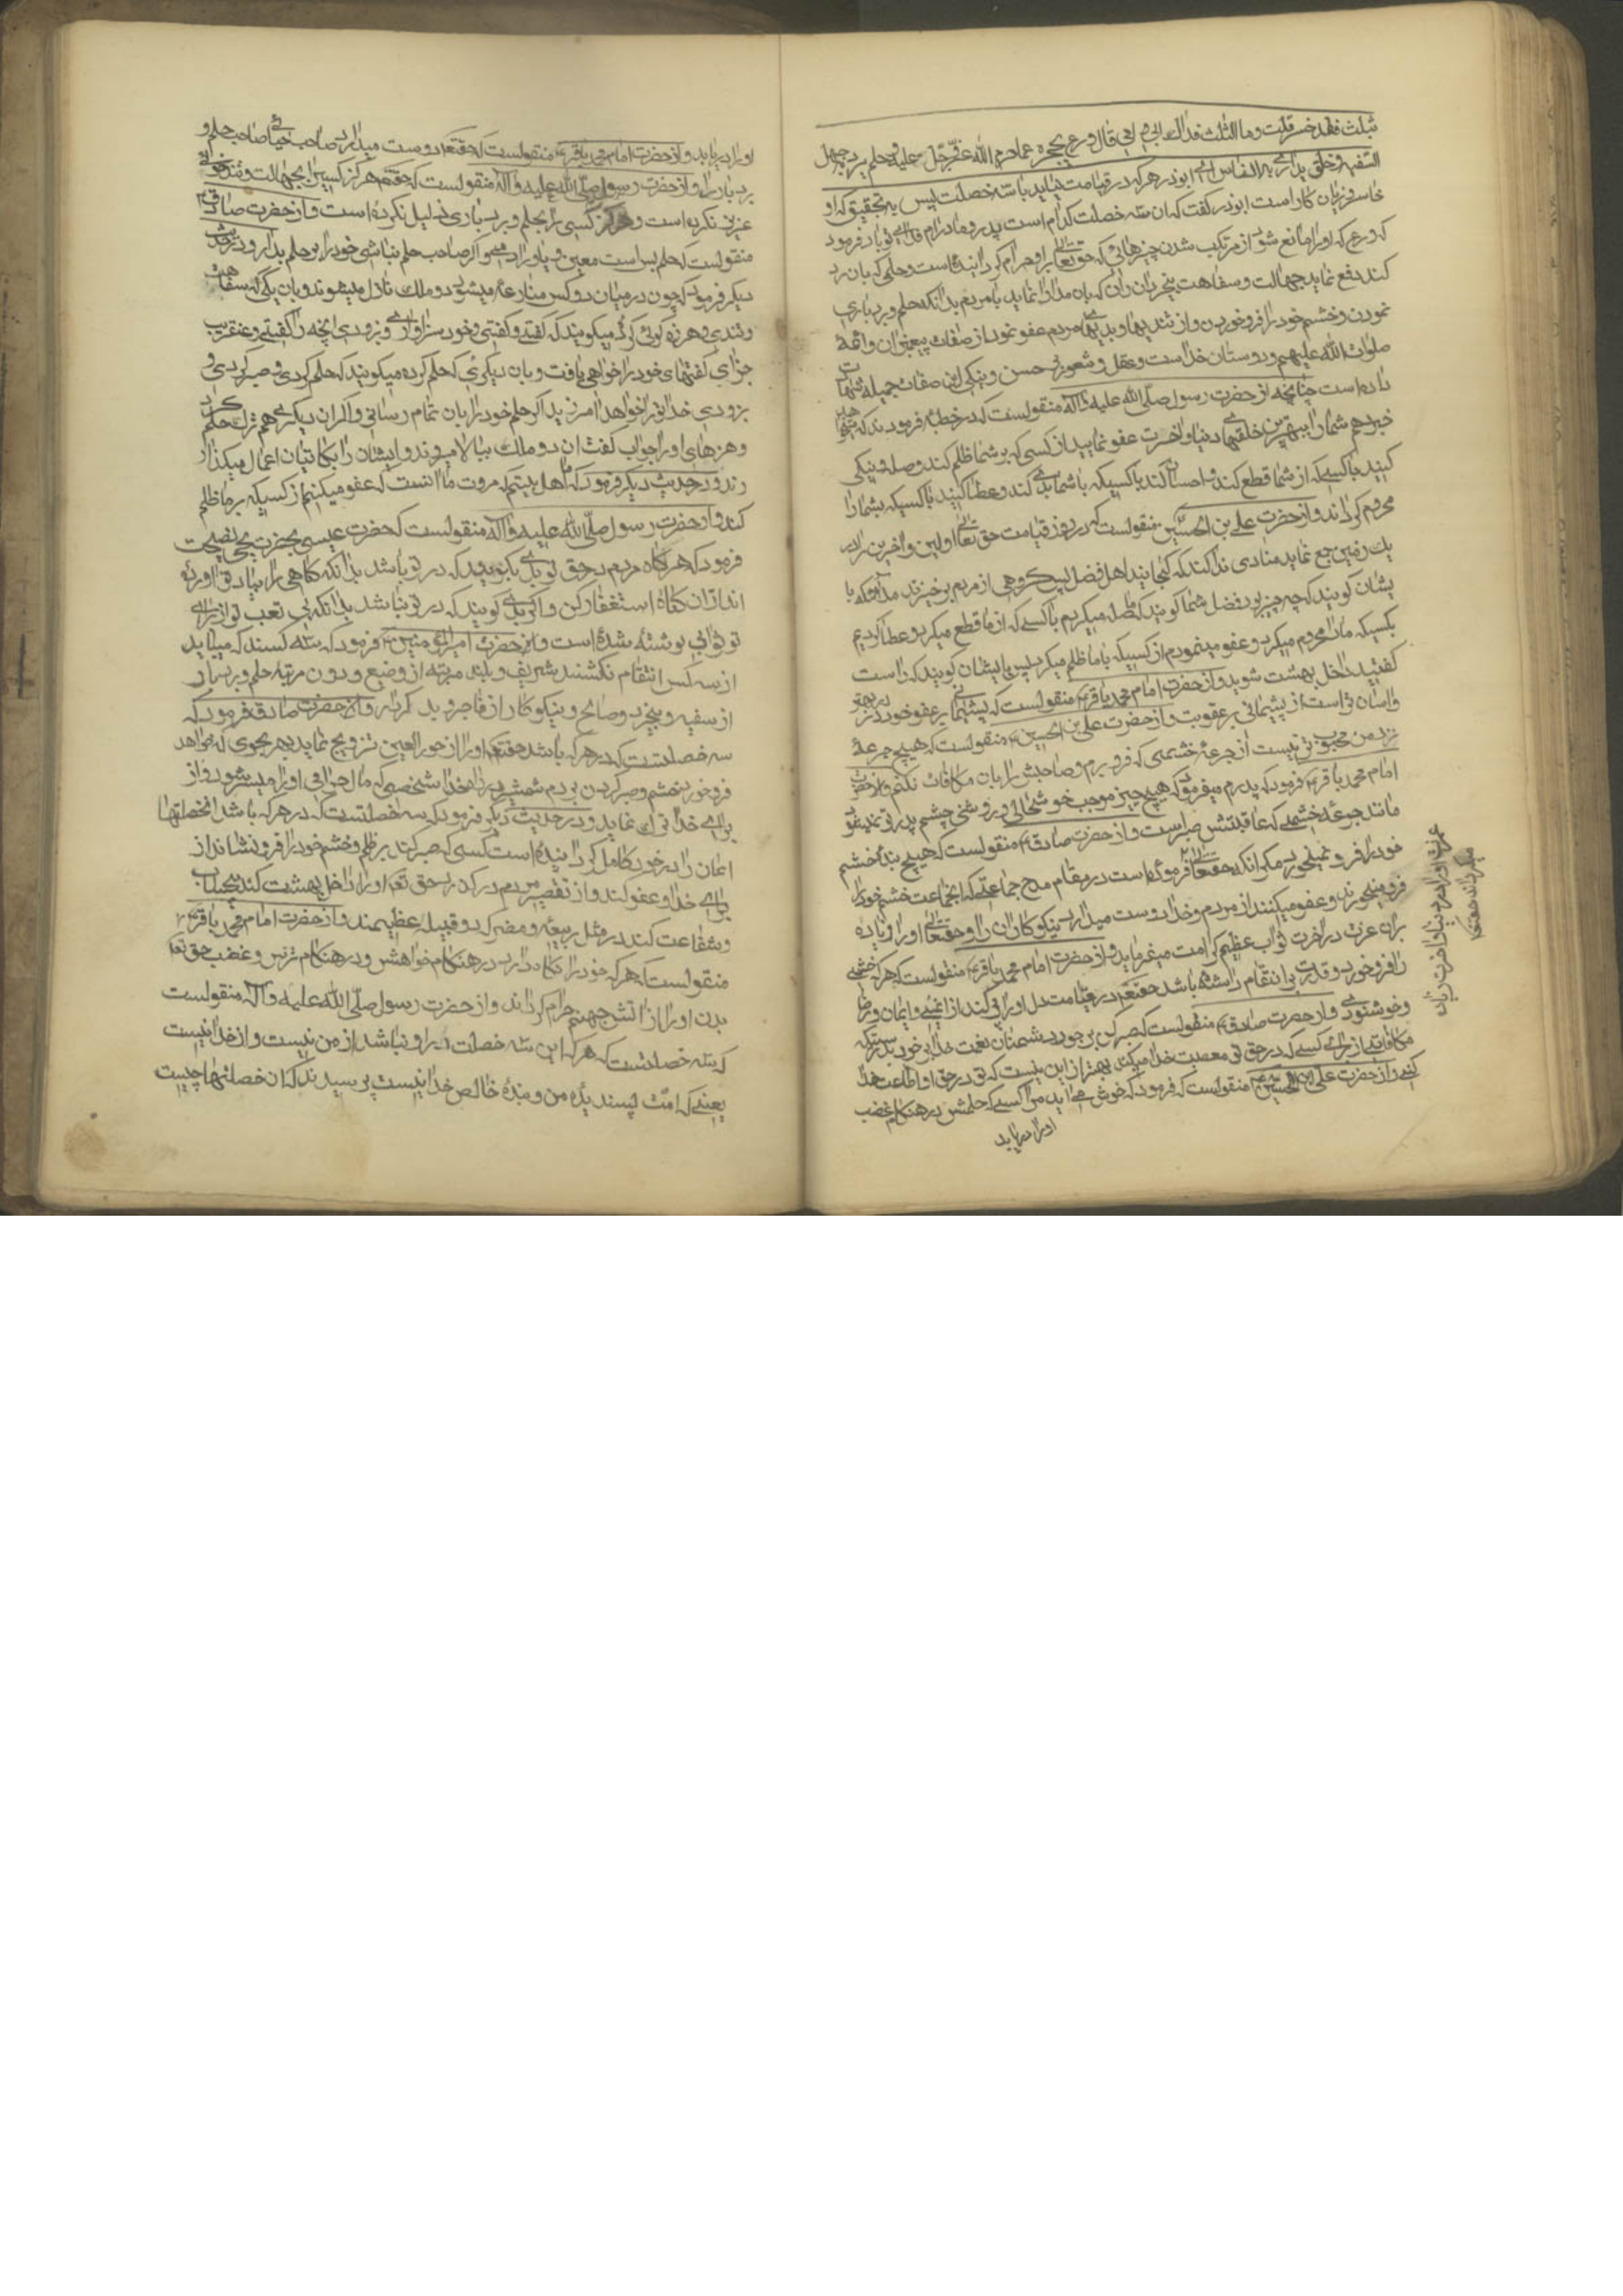 بثلث فقد خسر قلت وما الثلث فداك ابی و امی قال ورع یحجزه عما حرم الله عزّ وجلّ علیه و حلم یرد به جهل
السفیه و خلق یداری به الناس ای ابوذر هر که در قیامت نیاید با سه خصلت پس به تحقیق که او
خاسر و زیان کار است ابوذر گفت که ان سه خصلت کدام است پدر و مادرم فدای تو باد فرمود
که ورعی که او را مانع شود از مرتکب شدن چیزهائی که حق تعالی بر او حرام کردانیده است و حلمی که بان رد
کند دفع نماید جهالت و سفاهت بیخردان را که بان مدارا نماید با مردم بدانکه حلم و بردباری
نمودن و خشم خود را فرو خوردن و از تندیها و بدیهای مردم عفو نمود از صفات پیغمبران و ائمه
صلوات الله علیهم و دوستان خداست و عقل و شعور بر حسن و نیکی این صفات جمیله شهادت
داده است چنانچه از حضرت رسول صلّی الله علیه و اله منقولست که در خطبه فرمودند که میخواهید
خبر دهم شما را ببهترین خلقهای دنیا و اخرت عفو نمایید از کسی که بر شما ظلم کند و صله و نیکی
کنید با کسی که از شما قطع کند و احسان کند با کسیکه با شما بدی کند و عطا کنید با کسیکه شما را
محروم کرداند و از حضرت علی بن الحسین منقولست که در روز قیامت حق تعالی اولین و اخرین را در
یک زمین جمع نماید منادی ندا کند که کجایند اهل فضل پس کروهی از مردم برخیزند ملائکه با
یشان کویند که چه چیز بود فضل شما کویند که صله میکردیم با کسی که از ما قطع میکرد و عطا کردیم
بکسیکه ما را محروم میکرد و عفو مینمودیم از کسیکه با ما ظلم میکرد پس بایشان کویند که راست
کفتید داخل بهشت شوید و از حضرت امام محمد باقر ع منقولست که پشیمانی بر عفو خود در بهتر
و اسان تر است از پشیمانی بر عقوبت و از حضرت علی بن الحسین ع منقولست که هیچ جرعۀ
نزد من محبوب تر نیست از جرعۀ خشمی که فرو برم و صاحبش را بان مکافات نکنم و از حضرت
امام محمد باقر ع فرمود که پدرم میفرمود که هیچ چیز موجب خوشحالی و روشنی چشم پدر تو نمیشود
مانند جرعۀ خشمی که عاقبتش صبر است و از حضرت صادق ع منقولست که هیچ بندۀ خشم
خود را فرو نمیخورد مکر انکه حق تعالی
فرو میخورند و عفو میکنند از مردم و خدا دوست میدارد نیکوکاران را و حقتعالی او را زیاده
بران عزت در اخرت ثواب عظیم کرامت میفرماید و از حضرت امام محمد باقر ع منقولست که هر که خشمی
را فرو خورد و قدرت بر انتقام داشته باشد حقتعالی در قیامت دل او را پر کند از ایمنی و ایمان و رضا
و خوشنودی و از حضرت صادق ع منقولست که صبر کن بر حسد دشمنان نعمت خدا بر خود بدرستیکه
مکافاتی از برای کسی که در حق تو معصیت خدا میکند بهتر از این نیست که تو در حق او اطاعت خدا
کنی و از حضرت علی ابن الحسین ع منقولست که فرمود که خوش می اید مرا کسی که حلمش در هنکام غضب
او را دریابد
عزت او را در دنیا و اخرت زیاده
میکرداند حقتعالی
او را دریابد و از حضرت امام محمد باقر ع منقولست که حقتعالی دوست میدارد صاحب حیا صاحب حلم و
بردبار را و از حضرت رسول صلّی الله علیه و اله منقولست که حقتعالی هرکز کسی را بجهالت و تندخوئی
عزیز نکرده است و هرکز کسی را بحلم و بردباری ذلیل نکرده است و از حضرت صادق ع
منقولست که حلم بس است معین و یاور ادمی و اکر صاحب حلم نباشی خود را بر حلم بدار و در حدیث
دیکر فرمود که چون در میان دو کس منازعه میشود دو ملک نازل میشوند و بان یکی که سفاهت
و تندی و هرزه کوئی کرده میکویند که کفتی و کفتی و خود سزاواری و زودی انچه را کفتی و عنقریب
جزای کفتهای خود را خواهی یافت و بان دیکری که حلم کرده میکویند که حلم کردی و صبر کردی و
بزودی خدا ترا خواهد امرزید اکر حلم خود را بان تمام رسانی و اکر ان دیکری هم ترک حلم کرد
و هرزهای او را جواب کفت ان دو ملک ببالا میروند و ایشان را بکاتبان اعمال میکذا
رند و در حدیث دیکر فرمود که ما اهل بیتیم که مروت ما انست که عفو میکنیم از کسیکه بر ما ظلم
کند و از حضرت رسول صلّی الله علیه و اله منقولست که حضرت عیسی بحضرت یحیی نصیحت
فرمود که هرکاه مردم در حق تو بدی بکویند که در تو باشد بدانکه کناهی را بیاد تو اورده
اند از ان کناه استغفار کن و اکر بدی کویند که در تو نباشد بدانکه بی تعب تو از برای
تو ثوابی نوشته شده است و از حضرت امیر المؤمنین ع فرمود که سه کسند که میباید
از سه کس انتقام نکشند شریف و بلند مرتبه از وضیع و دون مرتبه حلم و بردبار
از سفیه و بیخرد و صالح و نیکوکار از فاجر و بد کردار و از حضرت صادق فرمود که
سه خصلتست که در هر که باشد حقتعالی او را از حور العین تزویج نماید بهر نحوی که خواهد
فرو خوردن خشم و صبر کردن بر دم شمشیر در راه خدا شخصی که مال حرامی او را میسر شود و از
برای خدا ترک نماید و در حدیث دیکر فرمود که سه خصلتست که در هر که باشد انخصلتها
ایمان را در خود کامل کردانیده است کسی که صبر کند بر ظلم و خشم خود را فرو نشاند از
برای خدا و عفو کند و از تقصیر مردم درکذرد حق تعالی او را داخل بهشت کند بیحساب
و شفاعت کند در مثل ربیعه و مضر که دو قبیله عظیمند و از حضرت امام محمد باقر ع
منقولست که هر که خود را نکاه دارد در هنکام خواهش و در هنکام ترس و غضب حق تعالی
بدن او را از اتش جهنم حرام کرداند و از حضرت رسول صلّی الله علیه و اله منقولست
که سه خصلتست که هر که این سه خصلت در او نباشد از من نیست و از خدا نیست
یعنی که امّت پسندیدۀ من و بندۀ خالص خدا نیست پرسیدند که ان خصلتها چیست